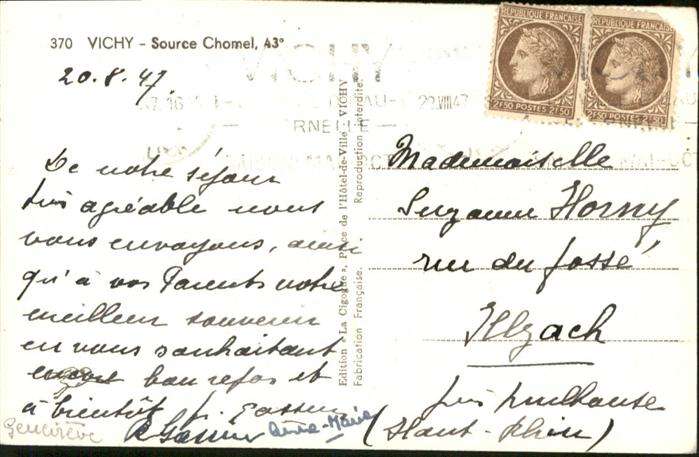 370 VICHY - Source Chomel, 43°
20.8.47
De notre séjour
très agréable nous
vous envoyons, ainsi
qu'à vos Parents notre
meilleur souvenir
en vous souhaitant
bon repos et
à bientôt
Geneviève
Anne-Marie
Edition « La Cigogne », Place de l'Hôtel-de-Ville, VICHY
Fabrication Française. Reproduction Interdite.
REPUBLIQUE FRANÇAISE
2F50 POSTES 2F50
REPUBLIQUE FRANÇAISE
2F50 POSTES 2F50
VICHY
20 VIII 47
Mademoiselle
Suzanne Horny
rue du fossé
Illzach
près Mulhouse
(Haut-Rhin)